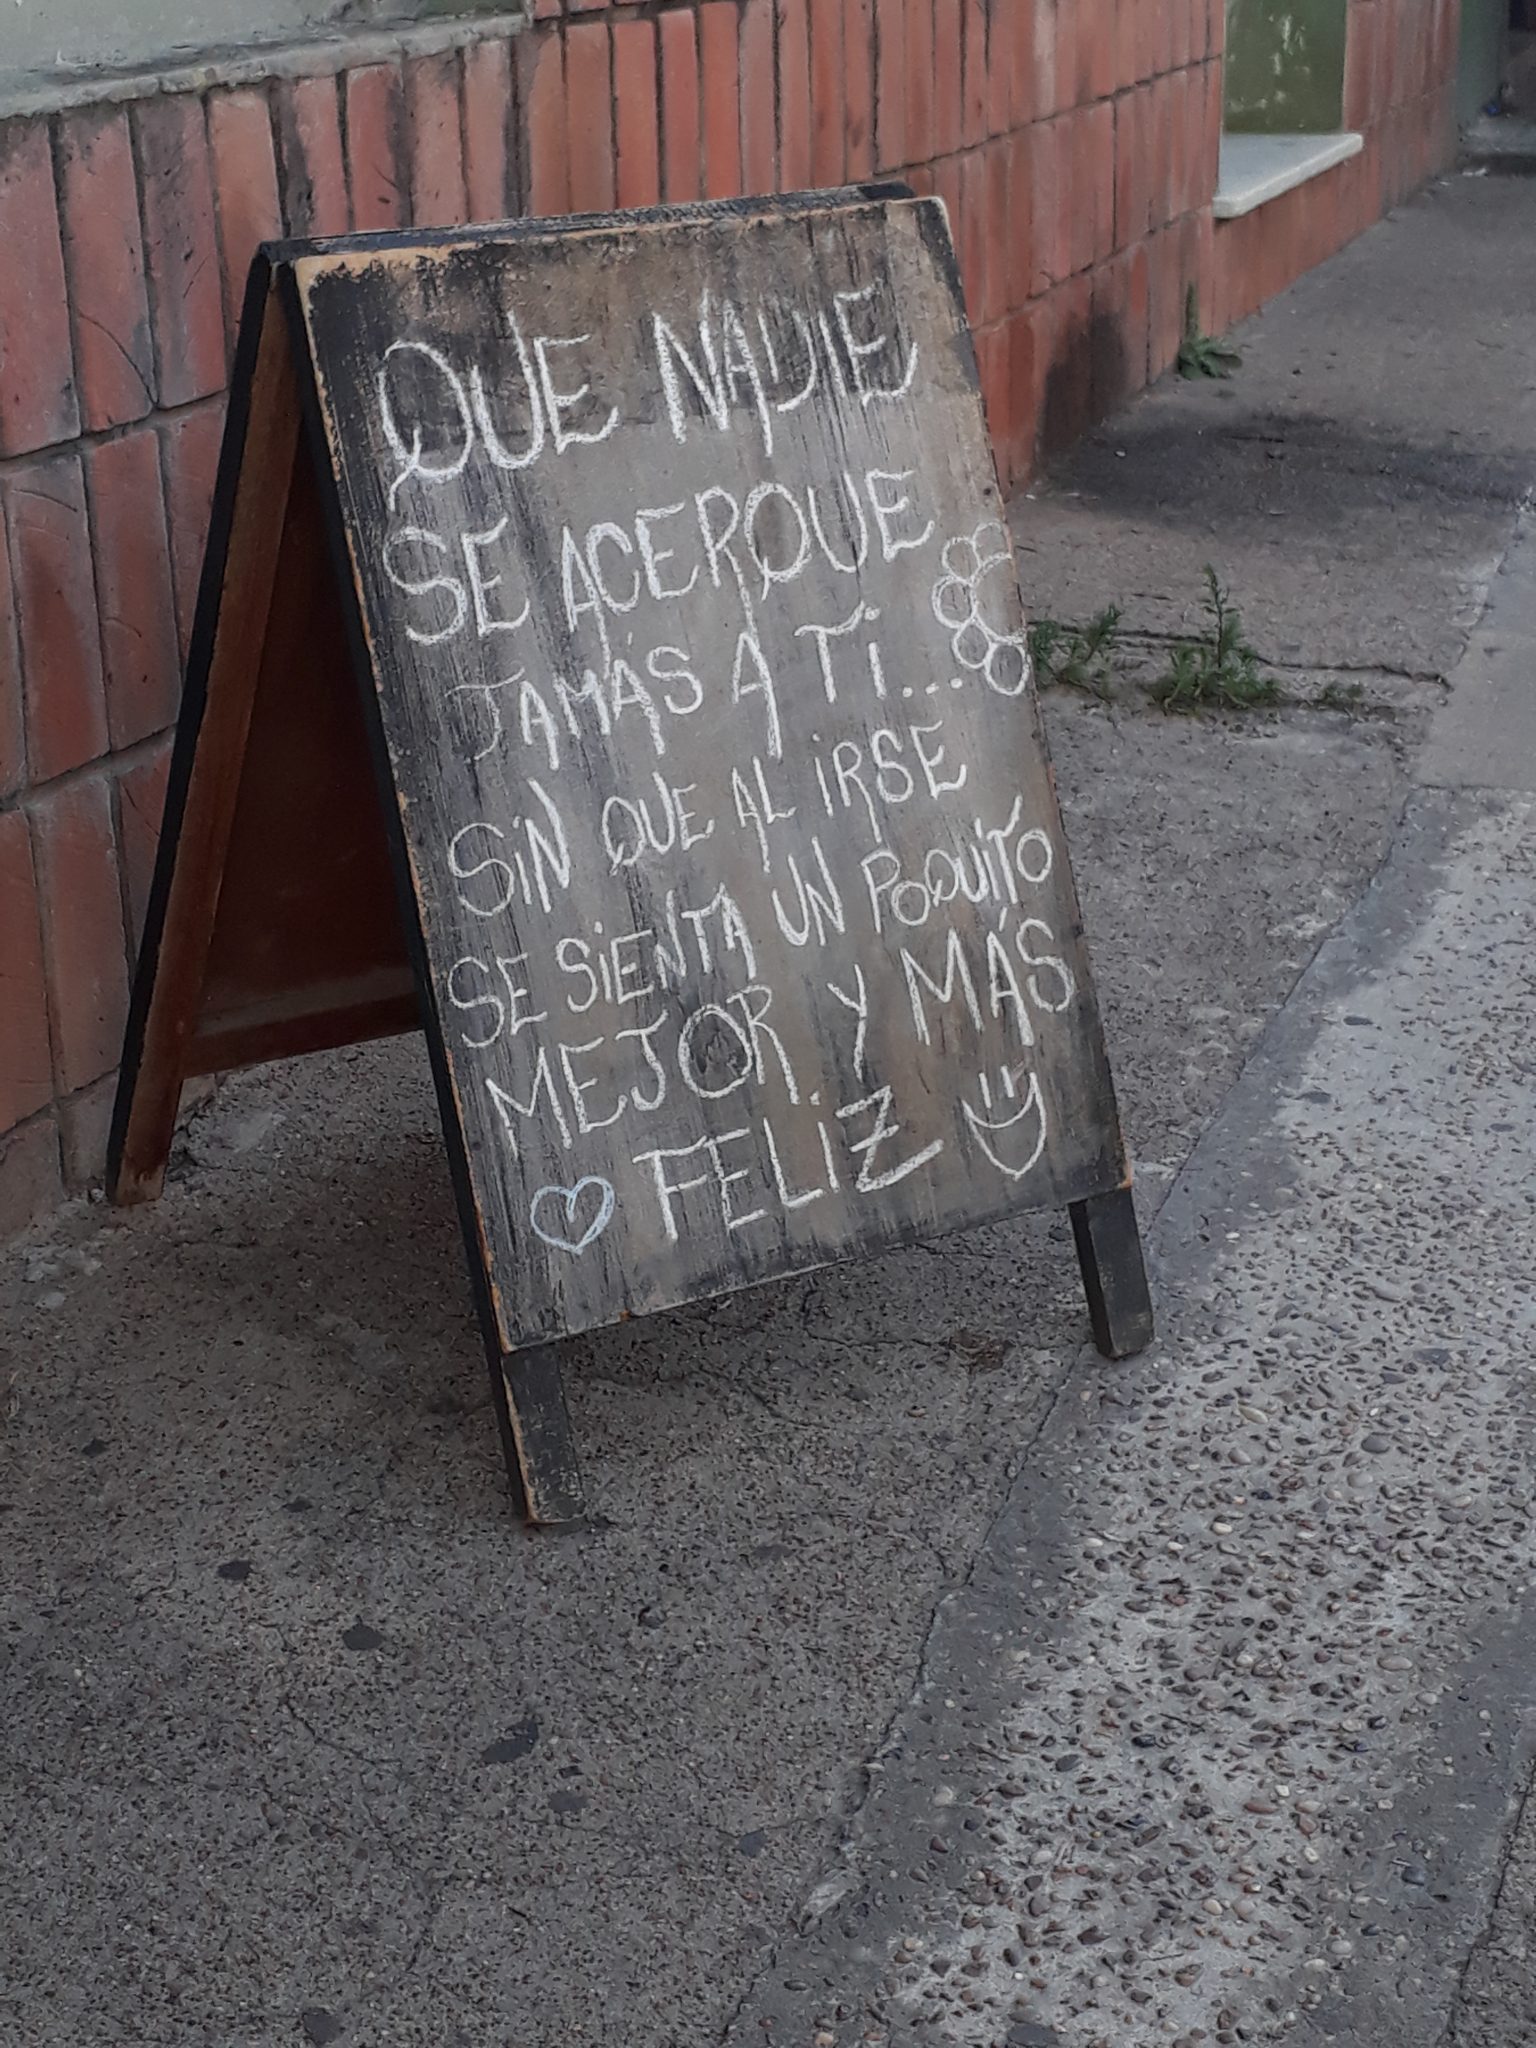 QUE NADIE
SE ACERQUE
JAMÁS A Ti...
SiN QUE AL iRSE
SE SiENTA UN POQUiTO
MEJOR Y MÁS
FELiZ